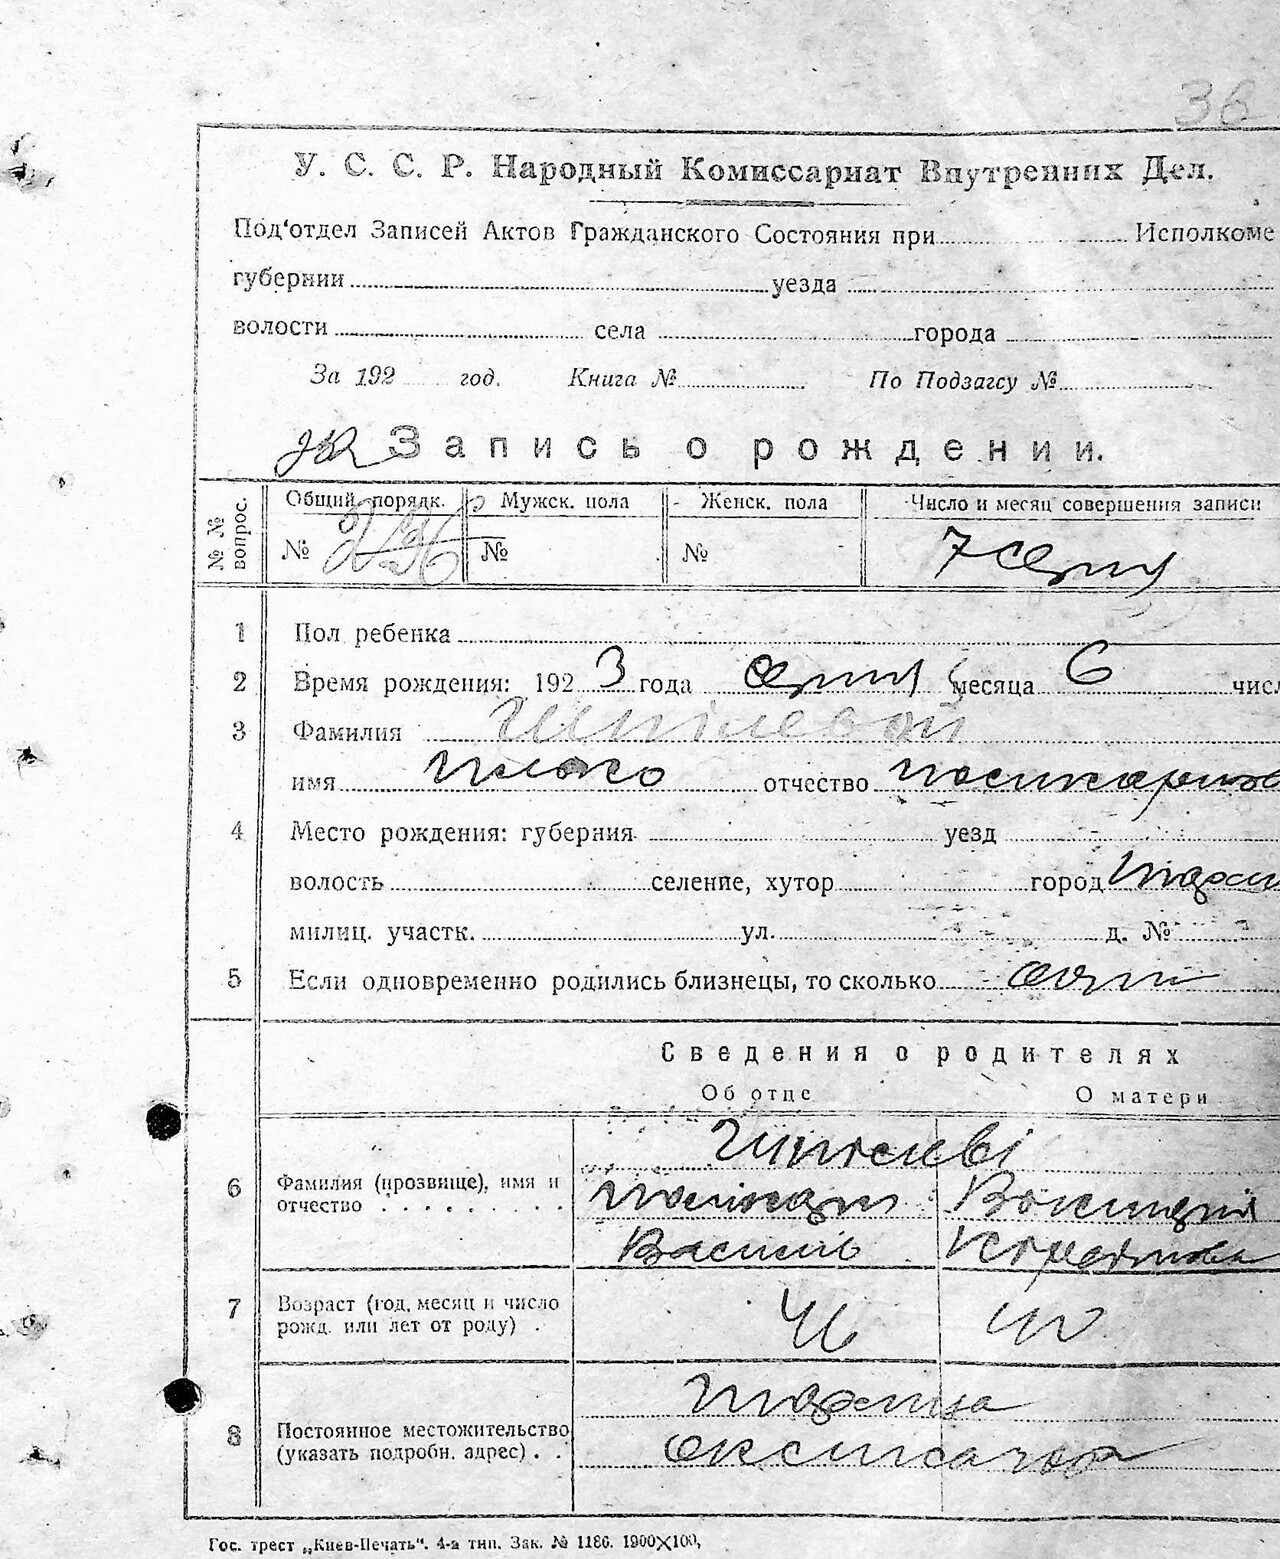 38
У. С. С. Р. Народный Комиссариат Внутренних Дел.
Под'отдел Записей Актов Гражданского Состояния при Исполкоме
губернии уезда
волости села города
За 192 год. Книга № По Подзагсу №
Запись о рождении.
№ № вопрос. Общий порядк. Мужск. пола Женск. пола Число и месяц совершения записи
№ № № 7 серпня
1 Пол ребенка
2 Время рождения: 1923 года серпня месяца 6 числ
3 Фамилия Шпілевой
имя отчество
4 Место рождения: губерния уезд
волость селение, хутор город
милиц. участк. ул. д. №
5 Если одновременно родились близнецы, то сколько один
Сведения о родителях
Об отце О матери
6 Фамилия (прозвище), имя и
отчество
Василь
7 Возраст (год, месяц и число
рожд. или лет от роду) 46 40
8 Постоянное местожительство
(указать подробн. адрес)
Гос. трест „Киев-Печать“. 4-а тип. Зак. № 1186. 1900×100,